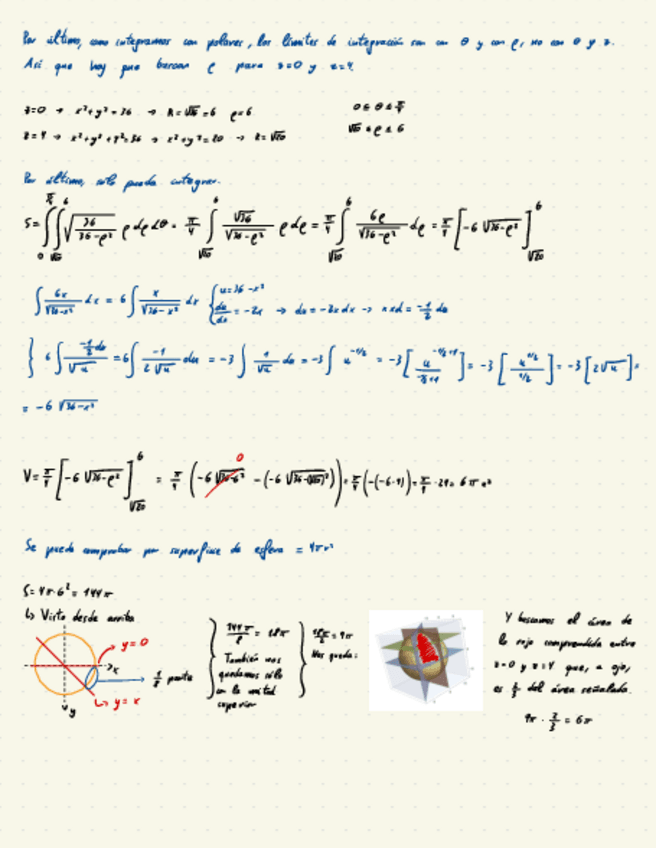 Por último, como integramos con polares, los límites de integración son con θ y con ρ, no con θ y z.
Así que hay que buscar ρ para z=0 y z=4.
z=0 → x²+y²=36 → R=√36=6 ρ=6
0≤θ≤π/4
z=4 → x²+y²+4²=36 → x²+y²=20 → R=√20
√20≤ρ≤6
Por último, solo queda integrar.
S=∫₀^{π/4}∫_{√20}^{6} √(36/(36-ρ²)) ρ dρ dθ = π/4 ∫_{√20}^{6} √36/√(36-ρ²) ρ dρ = π/4 ∫_{√20}^{6} 6ρ/√(36-ρ²) dρ = π/4 [-6√(36-ρ²)]_{√20}^{6}
∫ 6x/√(36-x²) dx = 6∫ x/√(36-x²) dx { u=36-x² du/dx = -2x → du=-2x dx → x dx = -1/2 du
} 6∫ (-1/2 du)/√u = 6∫ -1/(2√u) du = -3∫ 1/√u du = -3∫ u^{-1/2} = -3[u^{-1/2+1}/(-1/2+1)] = -3[u^{1/2}/(1/2)] = -3[2√u] =
= -6√(36-x²)
V=π/4 [-6√(36-ρ²)]_{√20}^{6} = π/4 (-6√(36-6²) 0 -(-6√(36-(√20)²))) = π/4 (-(-6·4)) = π/4 · 24 = 6π u²
Se puede comprobar por superficie de esfera = 4πr²
S=4π·6²=144π
↳ Visto desde arriba
y=0
x
y
y=x
1/8 parte
144π/8 = 18π
También nos
quedamos sólo
con la mitad
superior
18π/2 = 9π
Nos queda:
Y buscamos el área de
lo rojo comprendida entre
z=0 y z=4 que, a ojo,
es 2/3 del área señalada.
9π · 2/3 = 6π